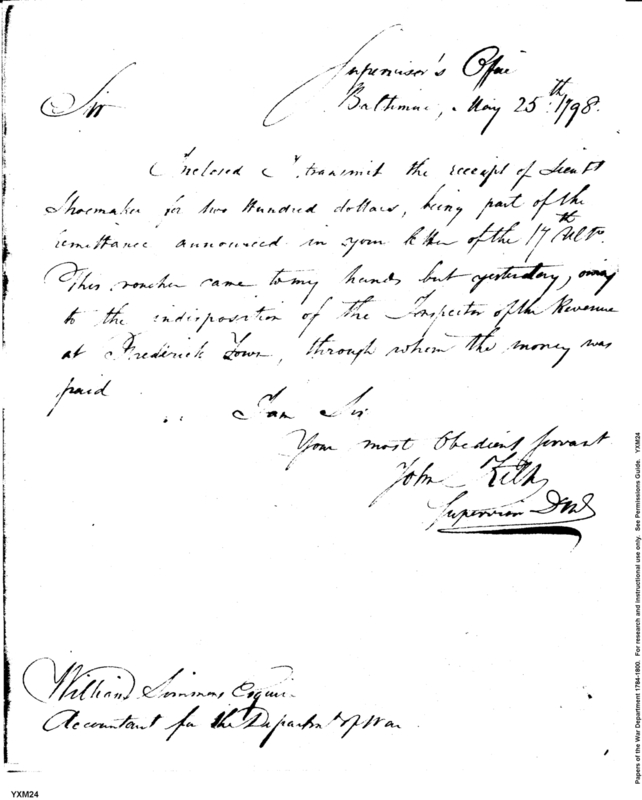 Supervisor's Office
Baltimore, May 25th. 1798.
Sir
Enclosed I transmit the receipt of Lieutt
Shoemaker for two Hundred dollars, being part of the
remittance announced in your letter of the 17th Ulto.
This voucher came to my hands but yesterday, owing
to the indisposition of the Inspector of the Revenue
at Frederick Town, through whom the money was
paid
I am Sir
Your most Obedient Servant
John Kilty
Supervisor
William Simmons Esquire
Accountant for the Departmt of War
Papers of the War Department 1784-1800. For research and instructional use only. See Permissions Guide. YXM24
YXM24